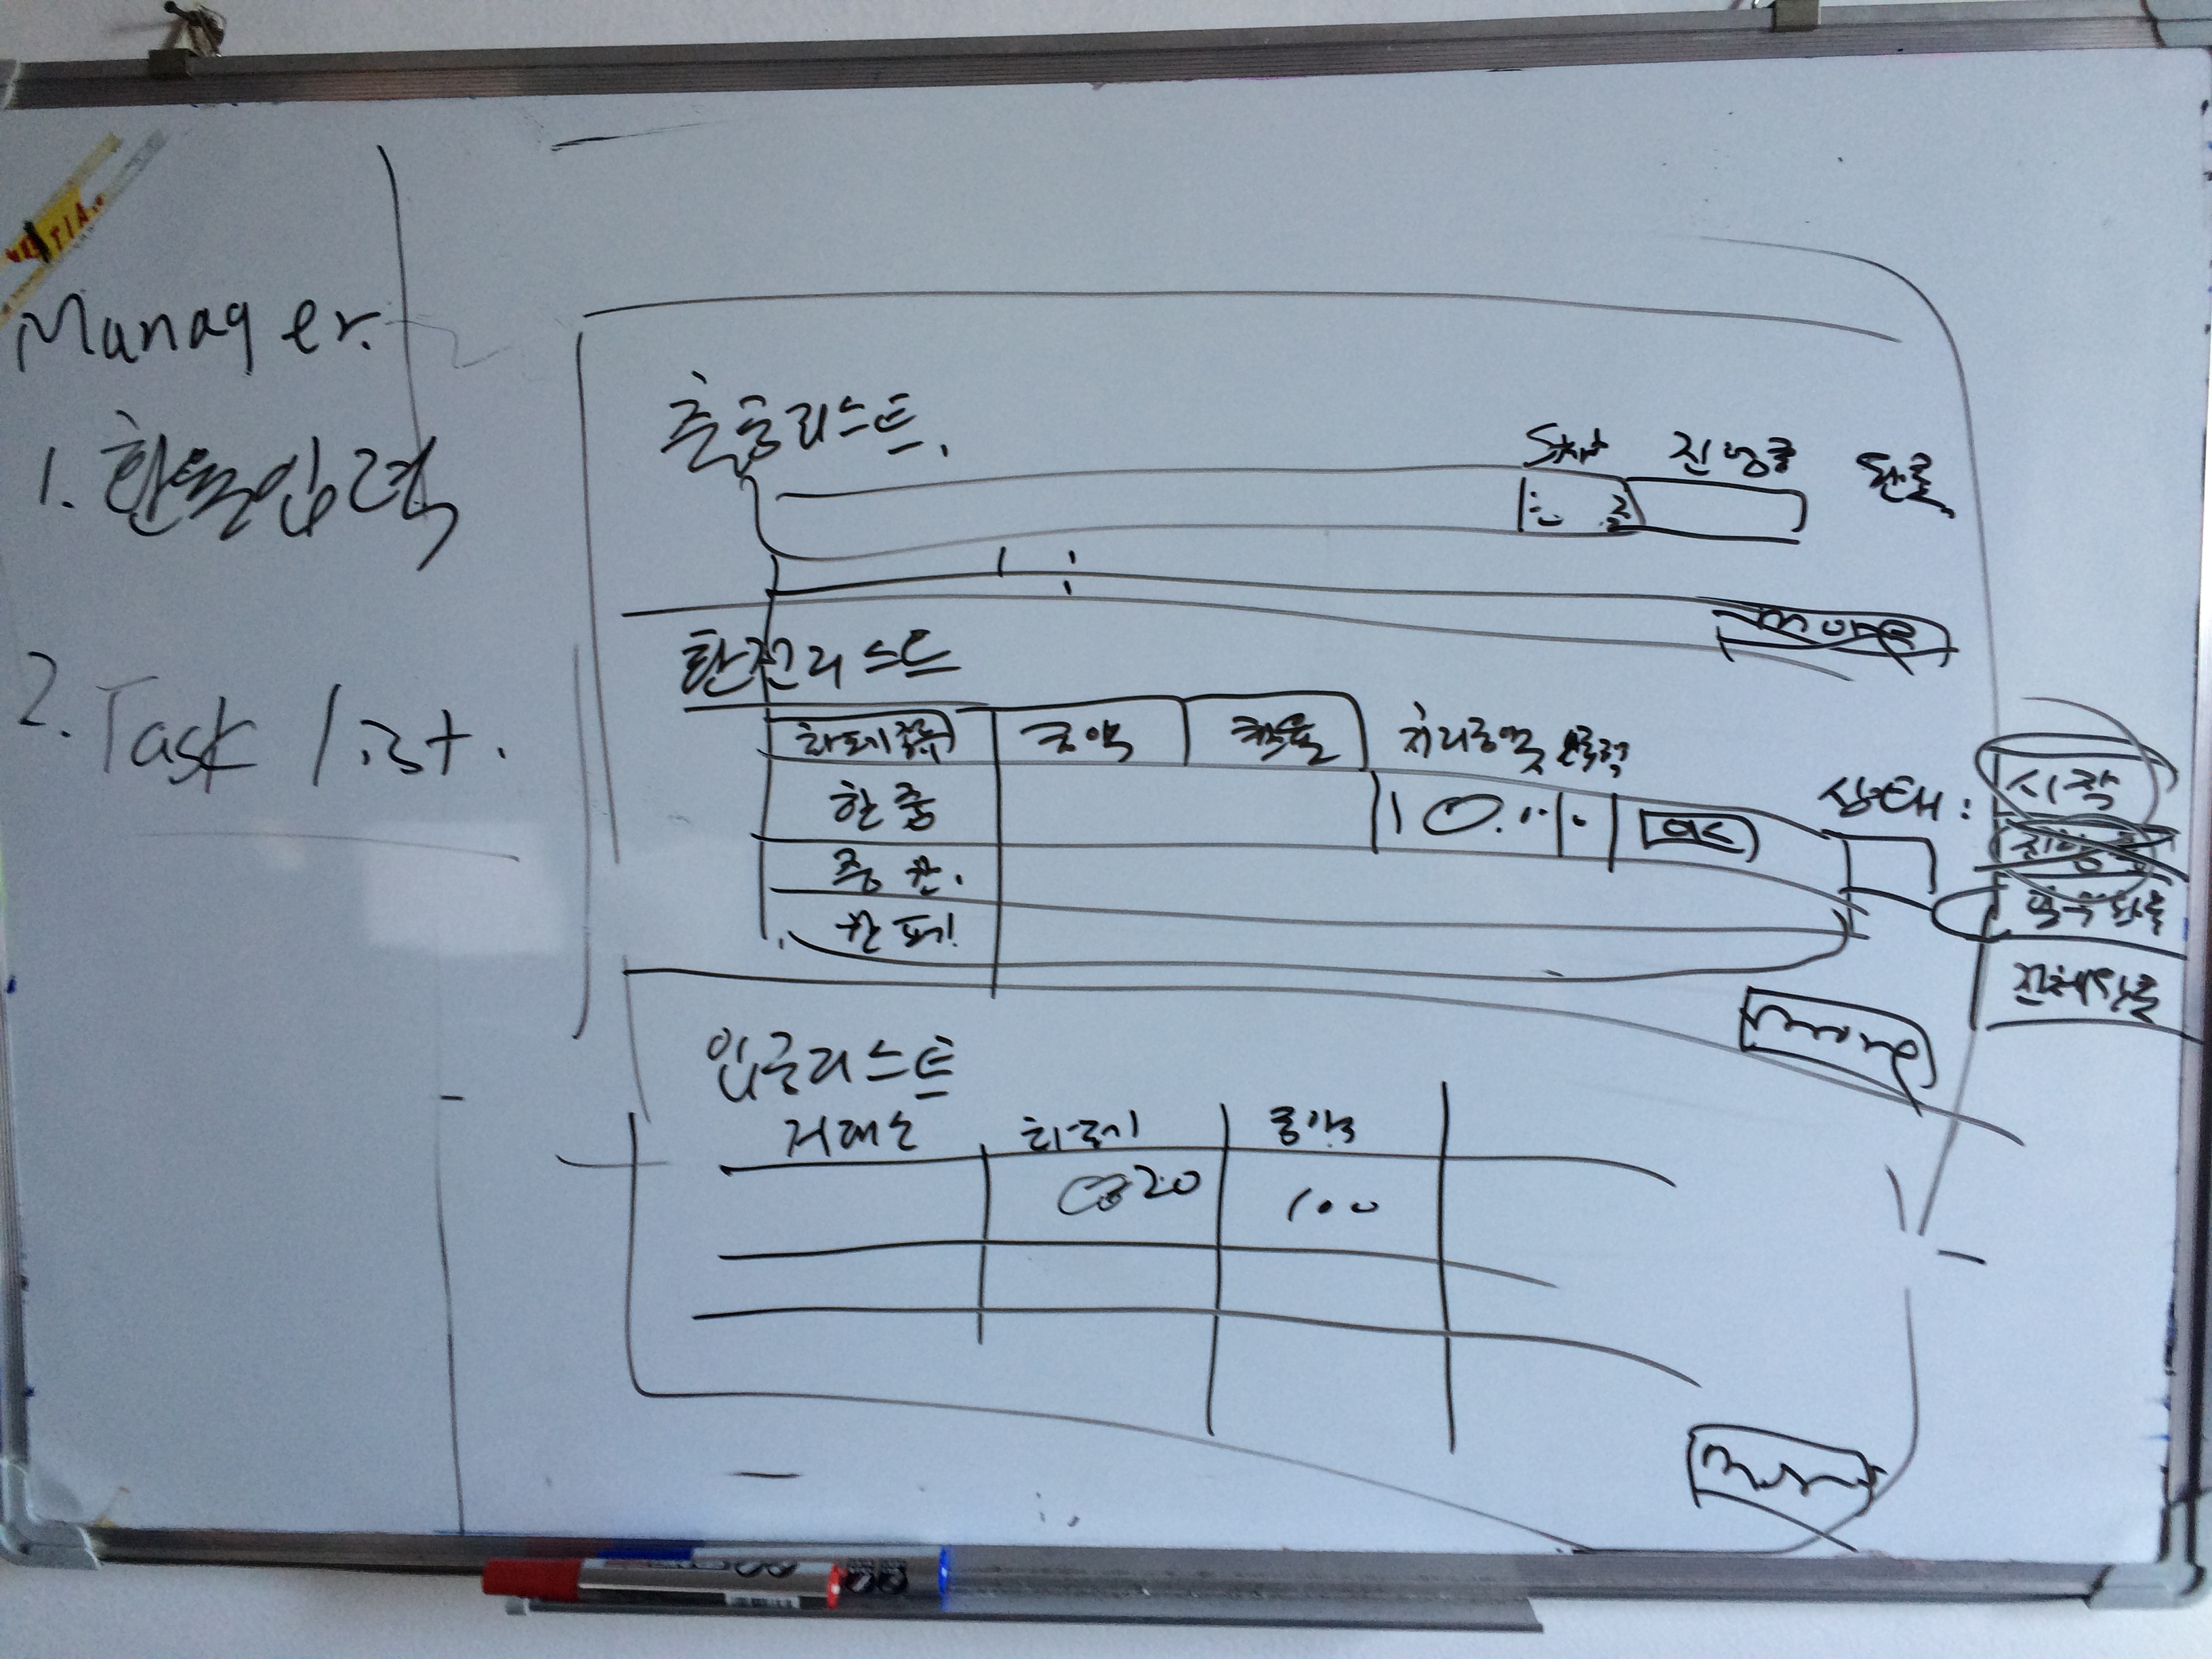 Manager.
1. 환율입력
2. Task list.
출금리스트.
Start 진행중 완료
more
환전리스트
화폐종류 금액 환율 처리금액 입력
한중
10.
OK
상태:
시작
진행중
중한.
한페
전체완료
more
입금리스트
거래소 화폐 금액
100
more